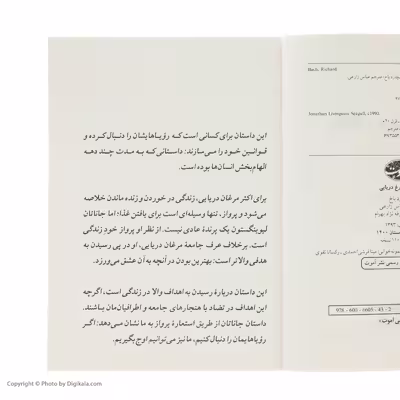 این داستان برای کسانی است که رؤیاهایشان را دنبال کرده و
قوانین خود را می‌سازند: داستانی که به مدت چند دهه
الهام‌بخش انسان‌ها بوده است.
برای اکثر مرغان دریایی، زندگی در خوردن و زنده ماندن خلاصه
می‌شود و پرواز، تنها وسیله‌ای است برای یافتن غذا؛ اما جاناتان
لیوینگستون یک پرنده عادی نیست. از نظر او پرواز خود زندگی
است. برخلاف عرف جامعۀ مرغان دریایی، او در پی رسیدن به
هدفی والاتر است: بهترین بودن در آنچه به آن عشق می‌ورزد.
این داستان دربارۀ رسیدن به اهداف والا در زندگی است، اگرچه
این اهداف در تضاد با هنجارهای جامعه و اطرافیان‌مان باشند.
داستان جاناتان از طریق استعارۀ پرواز به ما نشان می‌دهد: اگر
رؤیاهایمان را دنبال کنیم، ما نیز می‌توانیم اوج بگیریم.
Bach, Richard
Jonathan Livingston Seagull,
۹۷۸ - ۶۰۰ - ۶۶۰۵ - ۴۳ - ۲
Copyright © Photo by Digikala.com